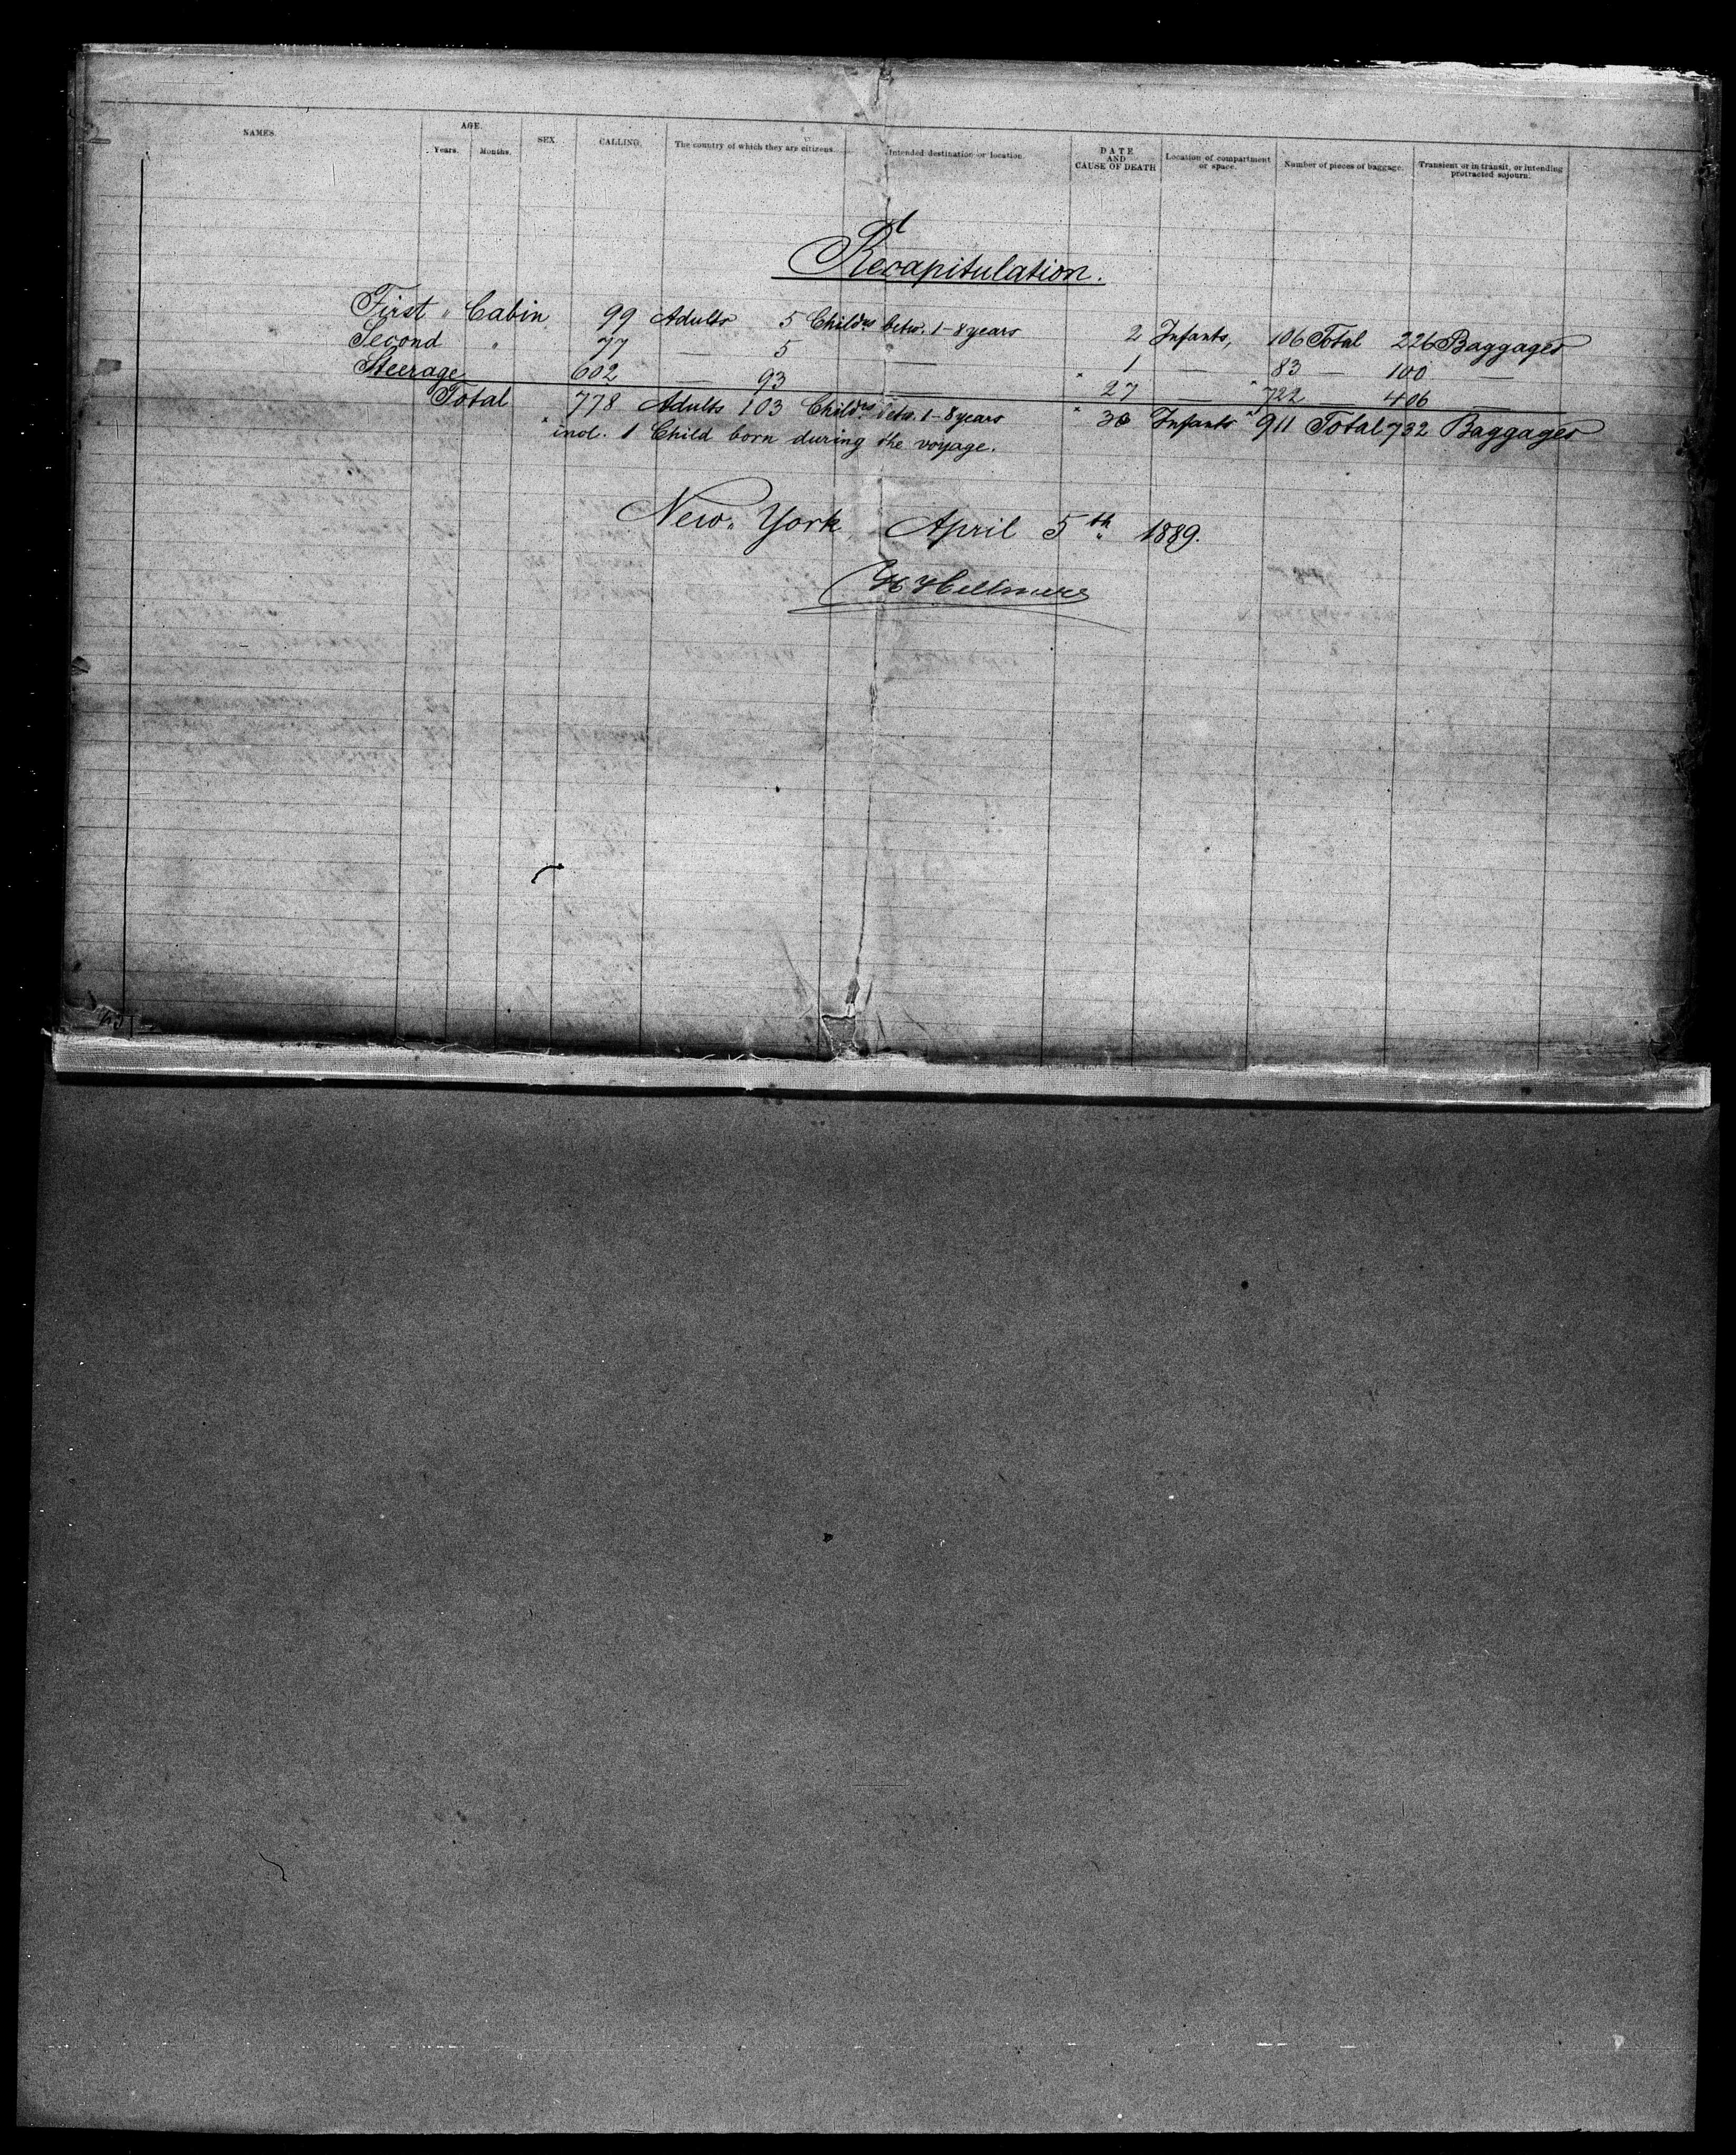 NAMES. AGE. SEX CALLING. The country of which they are citizens. Intended destination or location. DATE AND CAUSE OF DEATH Location of compartment or space. Number of pieces of baggage. Transient or in transit, or intending protracted sojourn.
Years. Months.
Recapitulation.
First " Cabin 99 Adults 5 Childrs betw. 1-8 years 2 Infants, 106 Total 226 Baggages
Second " 77 — 5 — 1 — 83 — 100 —
Steerage 602 — 93 — × 27 — × 722 — 406 —
Total 778 Adults 103 Childrs betw. 1-8 years × 30 Infants × 911 Total 732 Baggages
× incl. 1 Child born during the voyage.
New York, April 5th 1889.
H Hellmers